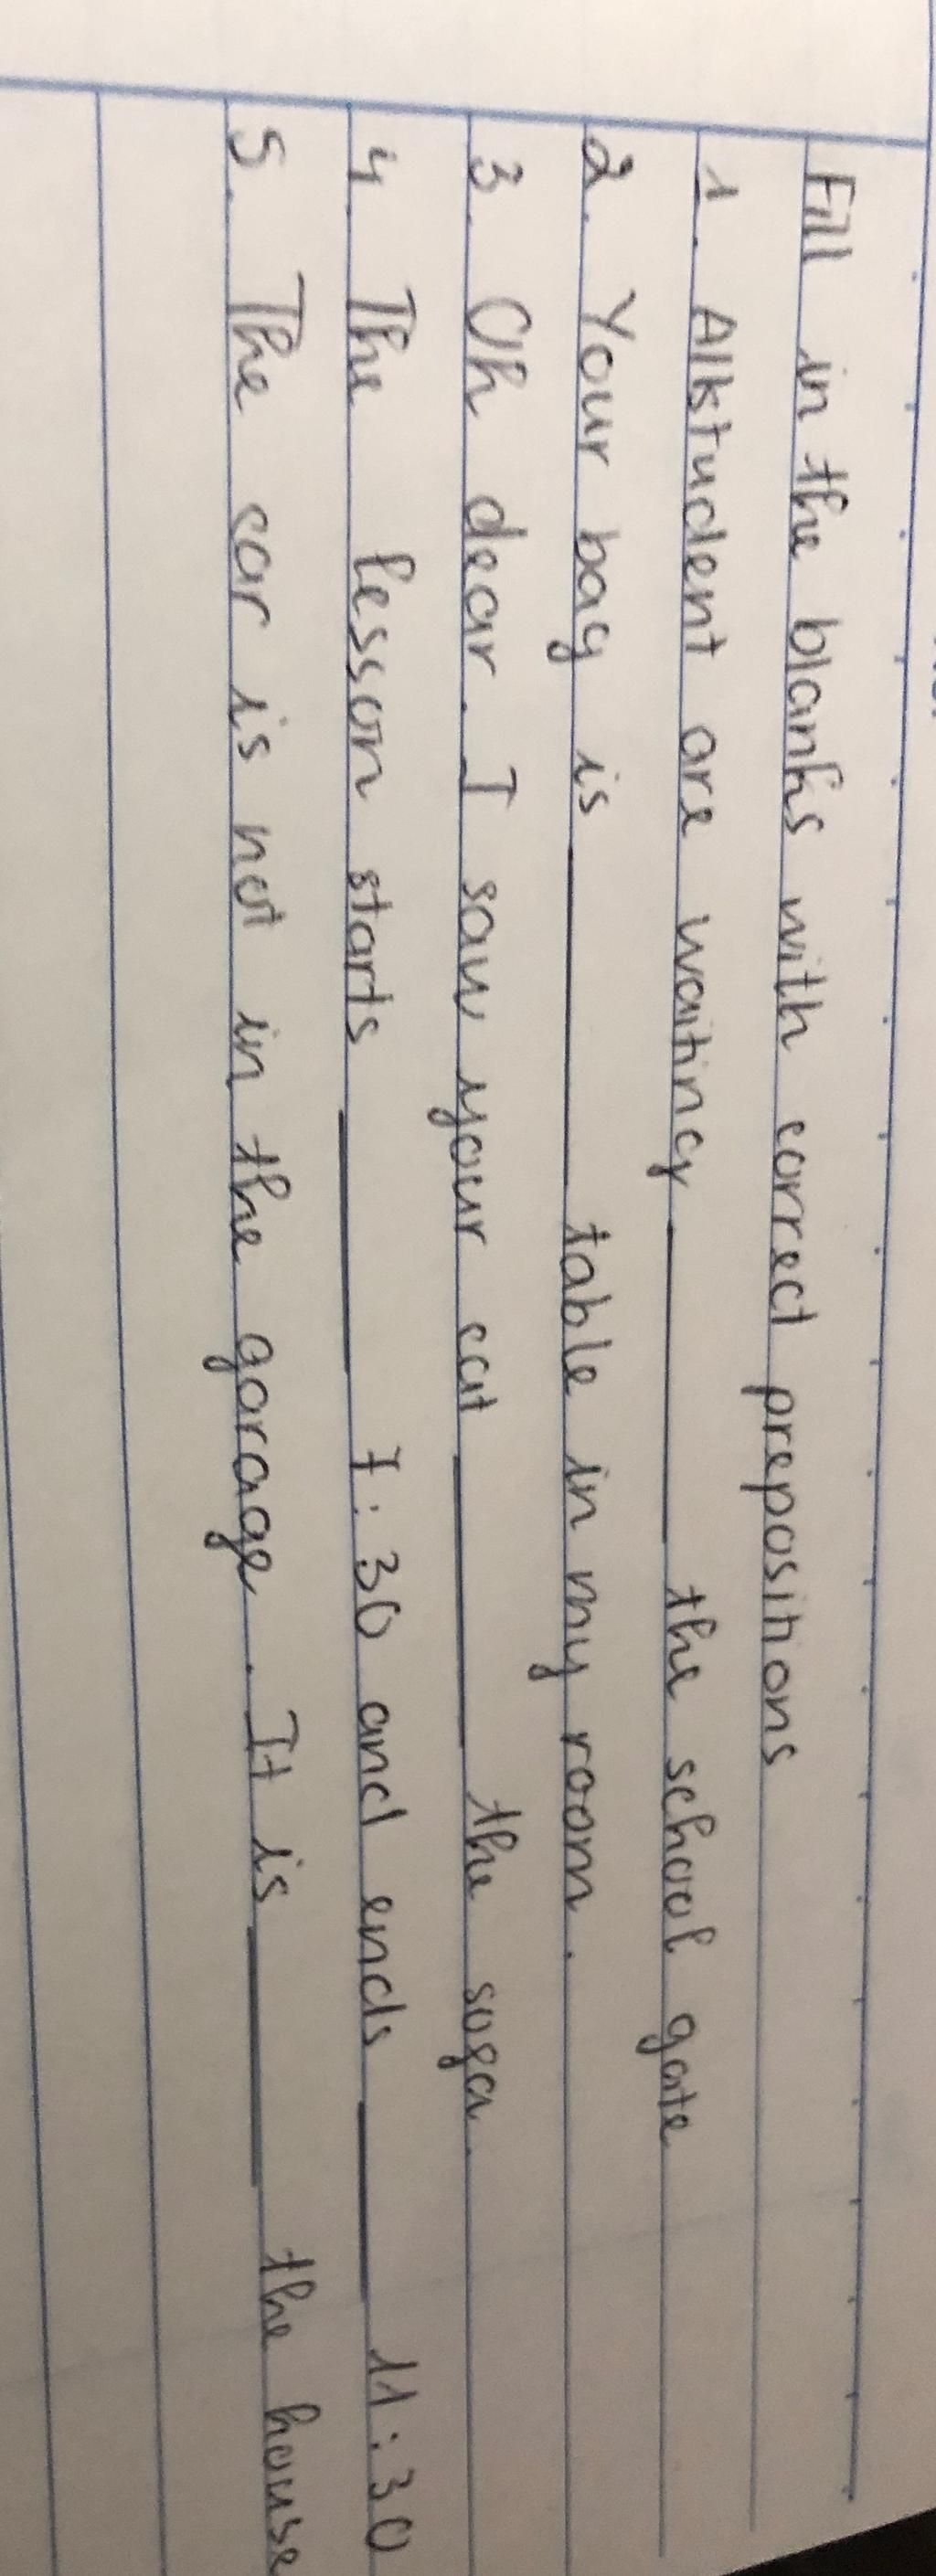 Fill in the blanks with correct prepositions
1. All student are waiting ______ the school gate
2. Your bag is ______ table in my room.
3. Oh dear. I saw your cat ______ the sofa
4. The lesson starts ______ 7:30 and ends ______ 11:30
5. The car is not in the garage. It is ______ the house